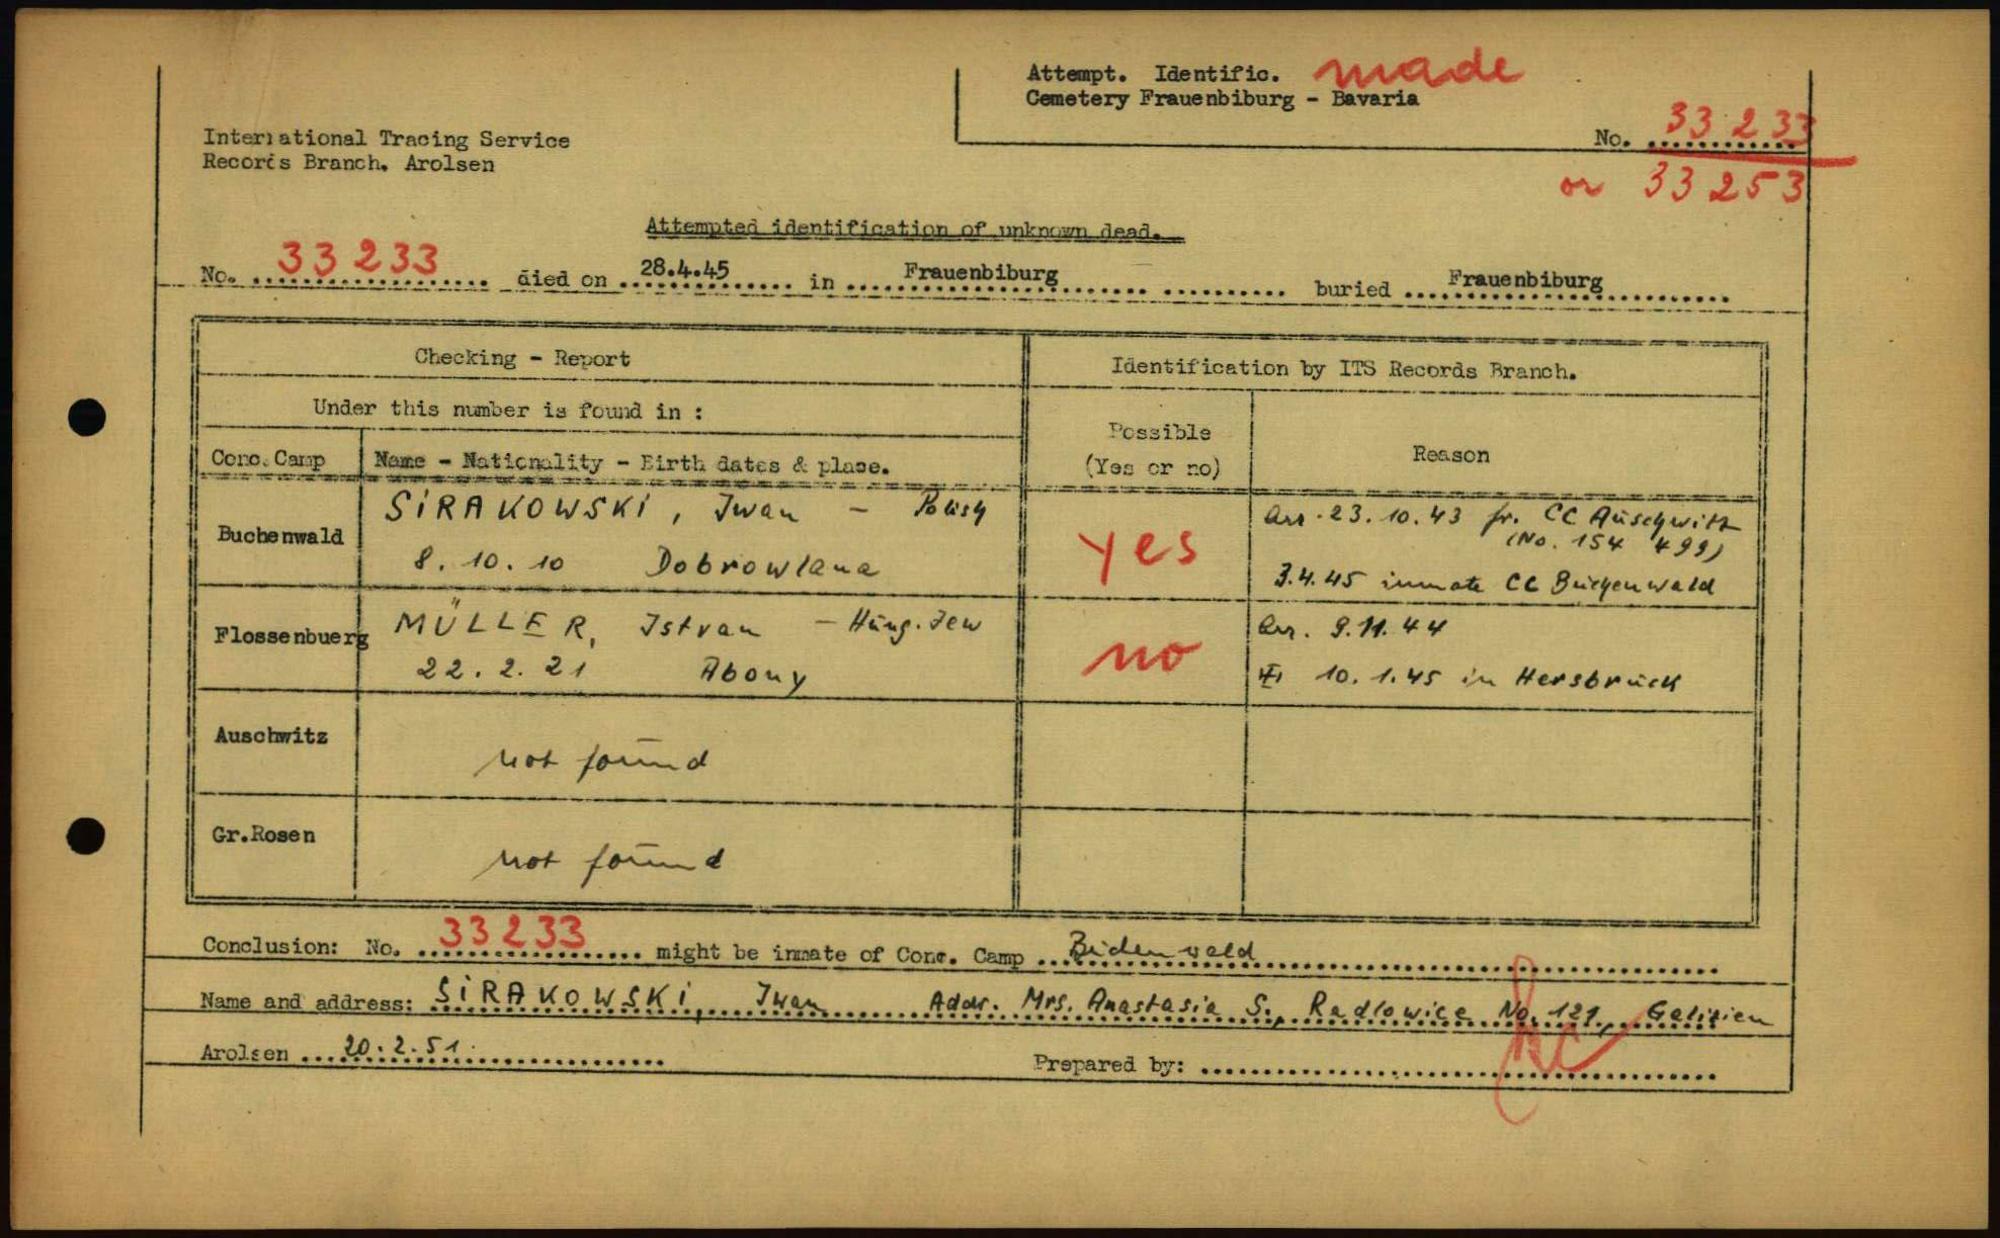 Attempt. Identific. made
Cemetery Frauenbiburg - Bavaria
No. 33 233
or 33 253
International Tracing Service
Records Branch. Arolsen
Attempted identification of unknown dead.
No. 33 233 died on 28.4.45 in Frauenbiburg buried Frauenbiburg
Checking - Report
Identification by ITS Records Branch.
Under this number is found in :
Possible
(Yes or no)
Reason
Conc. Camp Name - Nationality - Birth dates & place.
Buchenwald
SIRAKOWSKI, Iwan - Polish
8. 10. 10 Dobrowlana
yes
Arr. 23. 10. 43 fr. CC Auschwitz
(No. 154 499)
3.4.45 inmate CC Buchenwald
Flossenbuerg
MÜLLER, Istvan - Hung. Jew
22. 2. 21 Abony
no
Arr. 9.11.44
10.1.45 in Hersbruck
Auschwitz
not found
Gr.Rosen
not found
Conclusion: No. 33 233 might be inmate of Conc. Camp Buchenwald
Name and address: SIRAKOWSKI, Iwan Addr. Mrs. Anastasia S., Radlowice No. 121, Galizien
Arolsen 20.2.51. Prepared by: